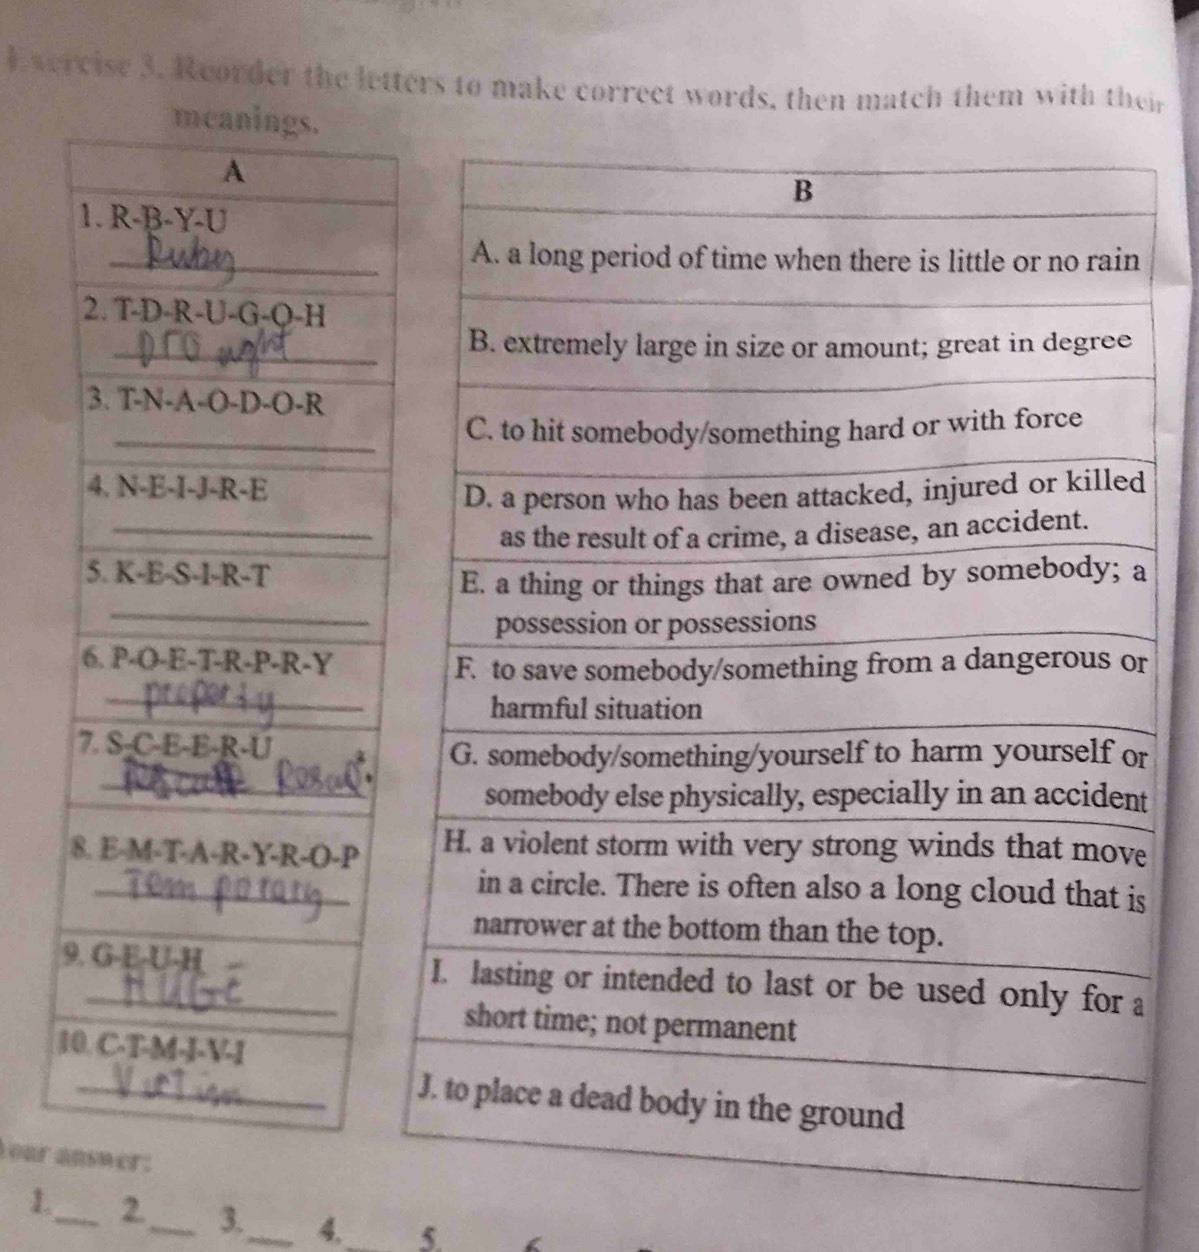 Exercise 3. Reorder the letters to make correct words, then match them with their
meanings.
A
1. R-B-Y-U
Ruby
2. T-D-R-U-G-O-H
Drought
3. T-N-A-O-D-O-R
4. N-E-I-J-R-E
5. K-E-S-I-R-T
6. P-O-E-T-R-P-R-Y
property
7. S-C-E-E-R-U
8. E-M-T-A-R-Y-R-O-P
Temporary
9. G-E-U-H
HUGE
10. C-T-M-I-V-I
Victim
B
A. a long period of time when there is little or no rain
B. extremely large in size or amount; great in degree
C. to hit somebody/something hard or with force
D. a person who has been attacked, injured or killed
as the result of a crime, a disease, an accident.
E. a thing or things that are owned by somebody; a
possession or possessions
F. to save somebody/something from a dangerous or
harmful situation
G. somebody/something/yourself to harm yourself or
somebody else physically, especially in an accident
H. a violent storm with very strong winds that move
in a circle. There is often also a long cloud that is
narrower at the bottom than the top.
I. lasting or intended to last or be used only for a
short time; not permanent
J. to place a dead body in the ground
Your answer:
1.___ 2.___ 3.___ 4.___ 5.